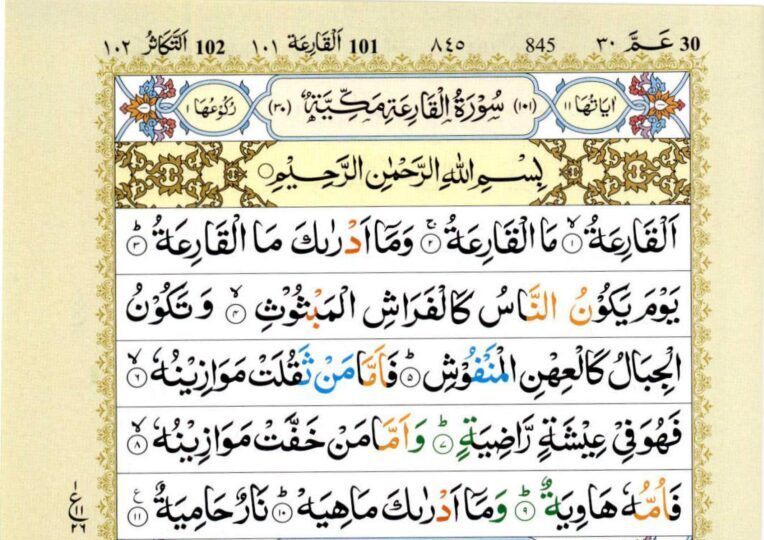 30 عَـمَّ ٣٠ 845 ٨٤٥ 101 اَلْقَارِعَة ١٠١ 102 اَلتَّكَاثُر ١٠٢
اٰیَاتُهَا ١١ (١٠١) سُوْرَةُ الْقَارِعَةِ مَكِّيَّةٌ (٣٠) رُكُوْعُهَا ١
بِسْمِ اللهِ الرَّحْمٰنِ الرَّحِيْمِ
اَلْقَارِعَةُ ۙ ١ مَا الْقَارِعَةُ ۚ ٢ وَمَاۤ اَدْرٰىكَ مَا الْقَارِعَةُ ؕ ٣
يَوْمَ يَكُوْنُ النَّاسُ كَالْفَرَاشِ الْمَبْثُوْثِ ۙ ٤ وَتَكُوْنُ
الْجِبَالُ كَالْعِهْنِ الْمَنْفُوْشِ ؕ ٥ فَاَمَّا مَنْ ثَقُلَتْ مَوَازِيْنُهٗ ۙ ٦
فَهُوَ فِيْ عِيْشَةٍ رَّاضِيَةٍ ؕ ٧ وَاَمَّا مَنْ خَفَّتْ مَوَازِيْنُهٗ ۙ ٨
فَاُمُّهٗ هَاوِيَةٌ ؕ ٩ وَمَاۤ اَدْرٰىكَ مَاهِيَهْ ؕ ١٠ نَارٌ حَامِيَةٌ ١١ ع
ع
١١
٢٦